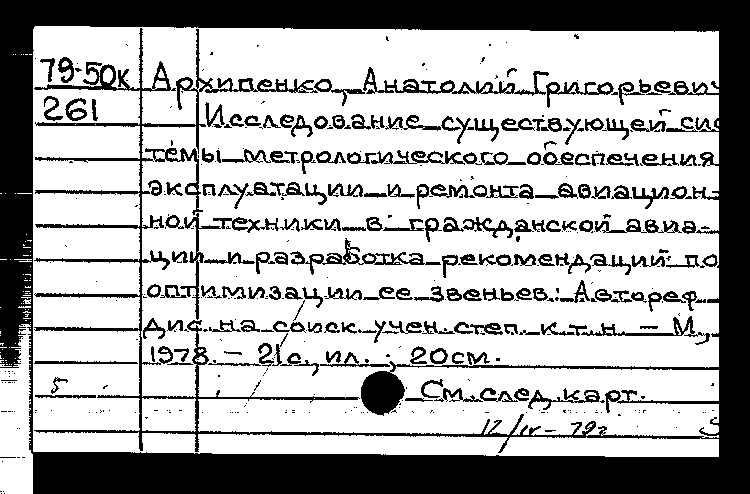 79-50к Архипенко, Анатолий Григорьевич
261 Исследование существующей сис
темы метрологического обеспечения
эксплуатации и ремонта авиацион-
ной техники в гражданской авиа-
ции и разработка рекомендаций по
оптимизации ее звеньев: Автореф
дис на соиск учен. степ. к.т.н. — М.,
1978. — 21с., ил. ; 20см.
5 См. след. карт.
12/IV – 79г